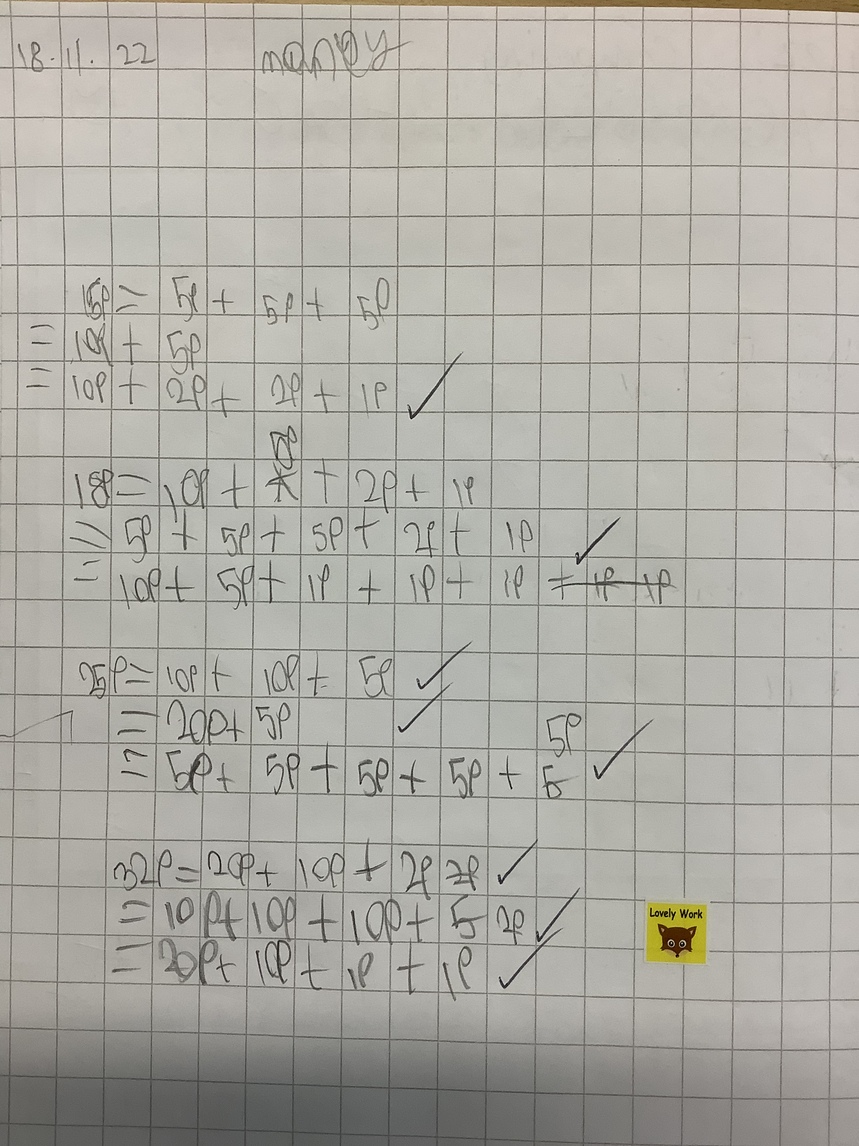 18.11.22 money
15p = 5p + 5p + 5p
= 10p + 5p
= 10p + 2p + 2p + 1p
5p
18p = 10p + + 2p + 1p
= 5p + 5p + 5p + 2p + 1p
= 10p + 5p + 1p + 1p + 1p + 1p 1p
25p = 10p + 10p + 5p
= 20p + 5p
5p
= 5p + 5p + 5p + 5p + 5
32p = 20p + 10p + 2p 2p
= 10p + 10p + 10p + 5 2p
= 20p + 10p + 1p + 1p
Lovely Work